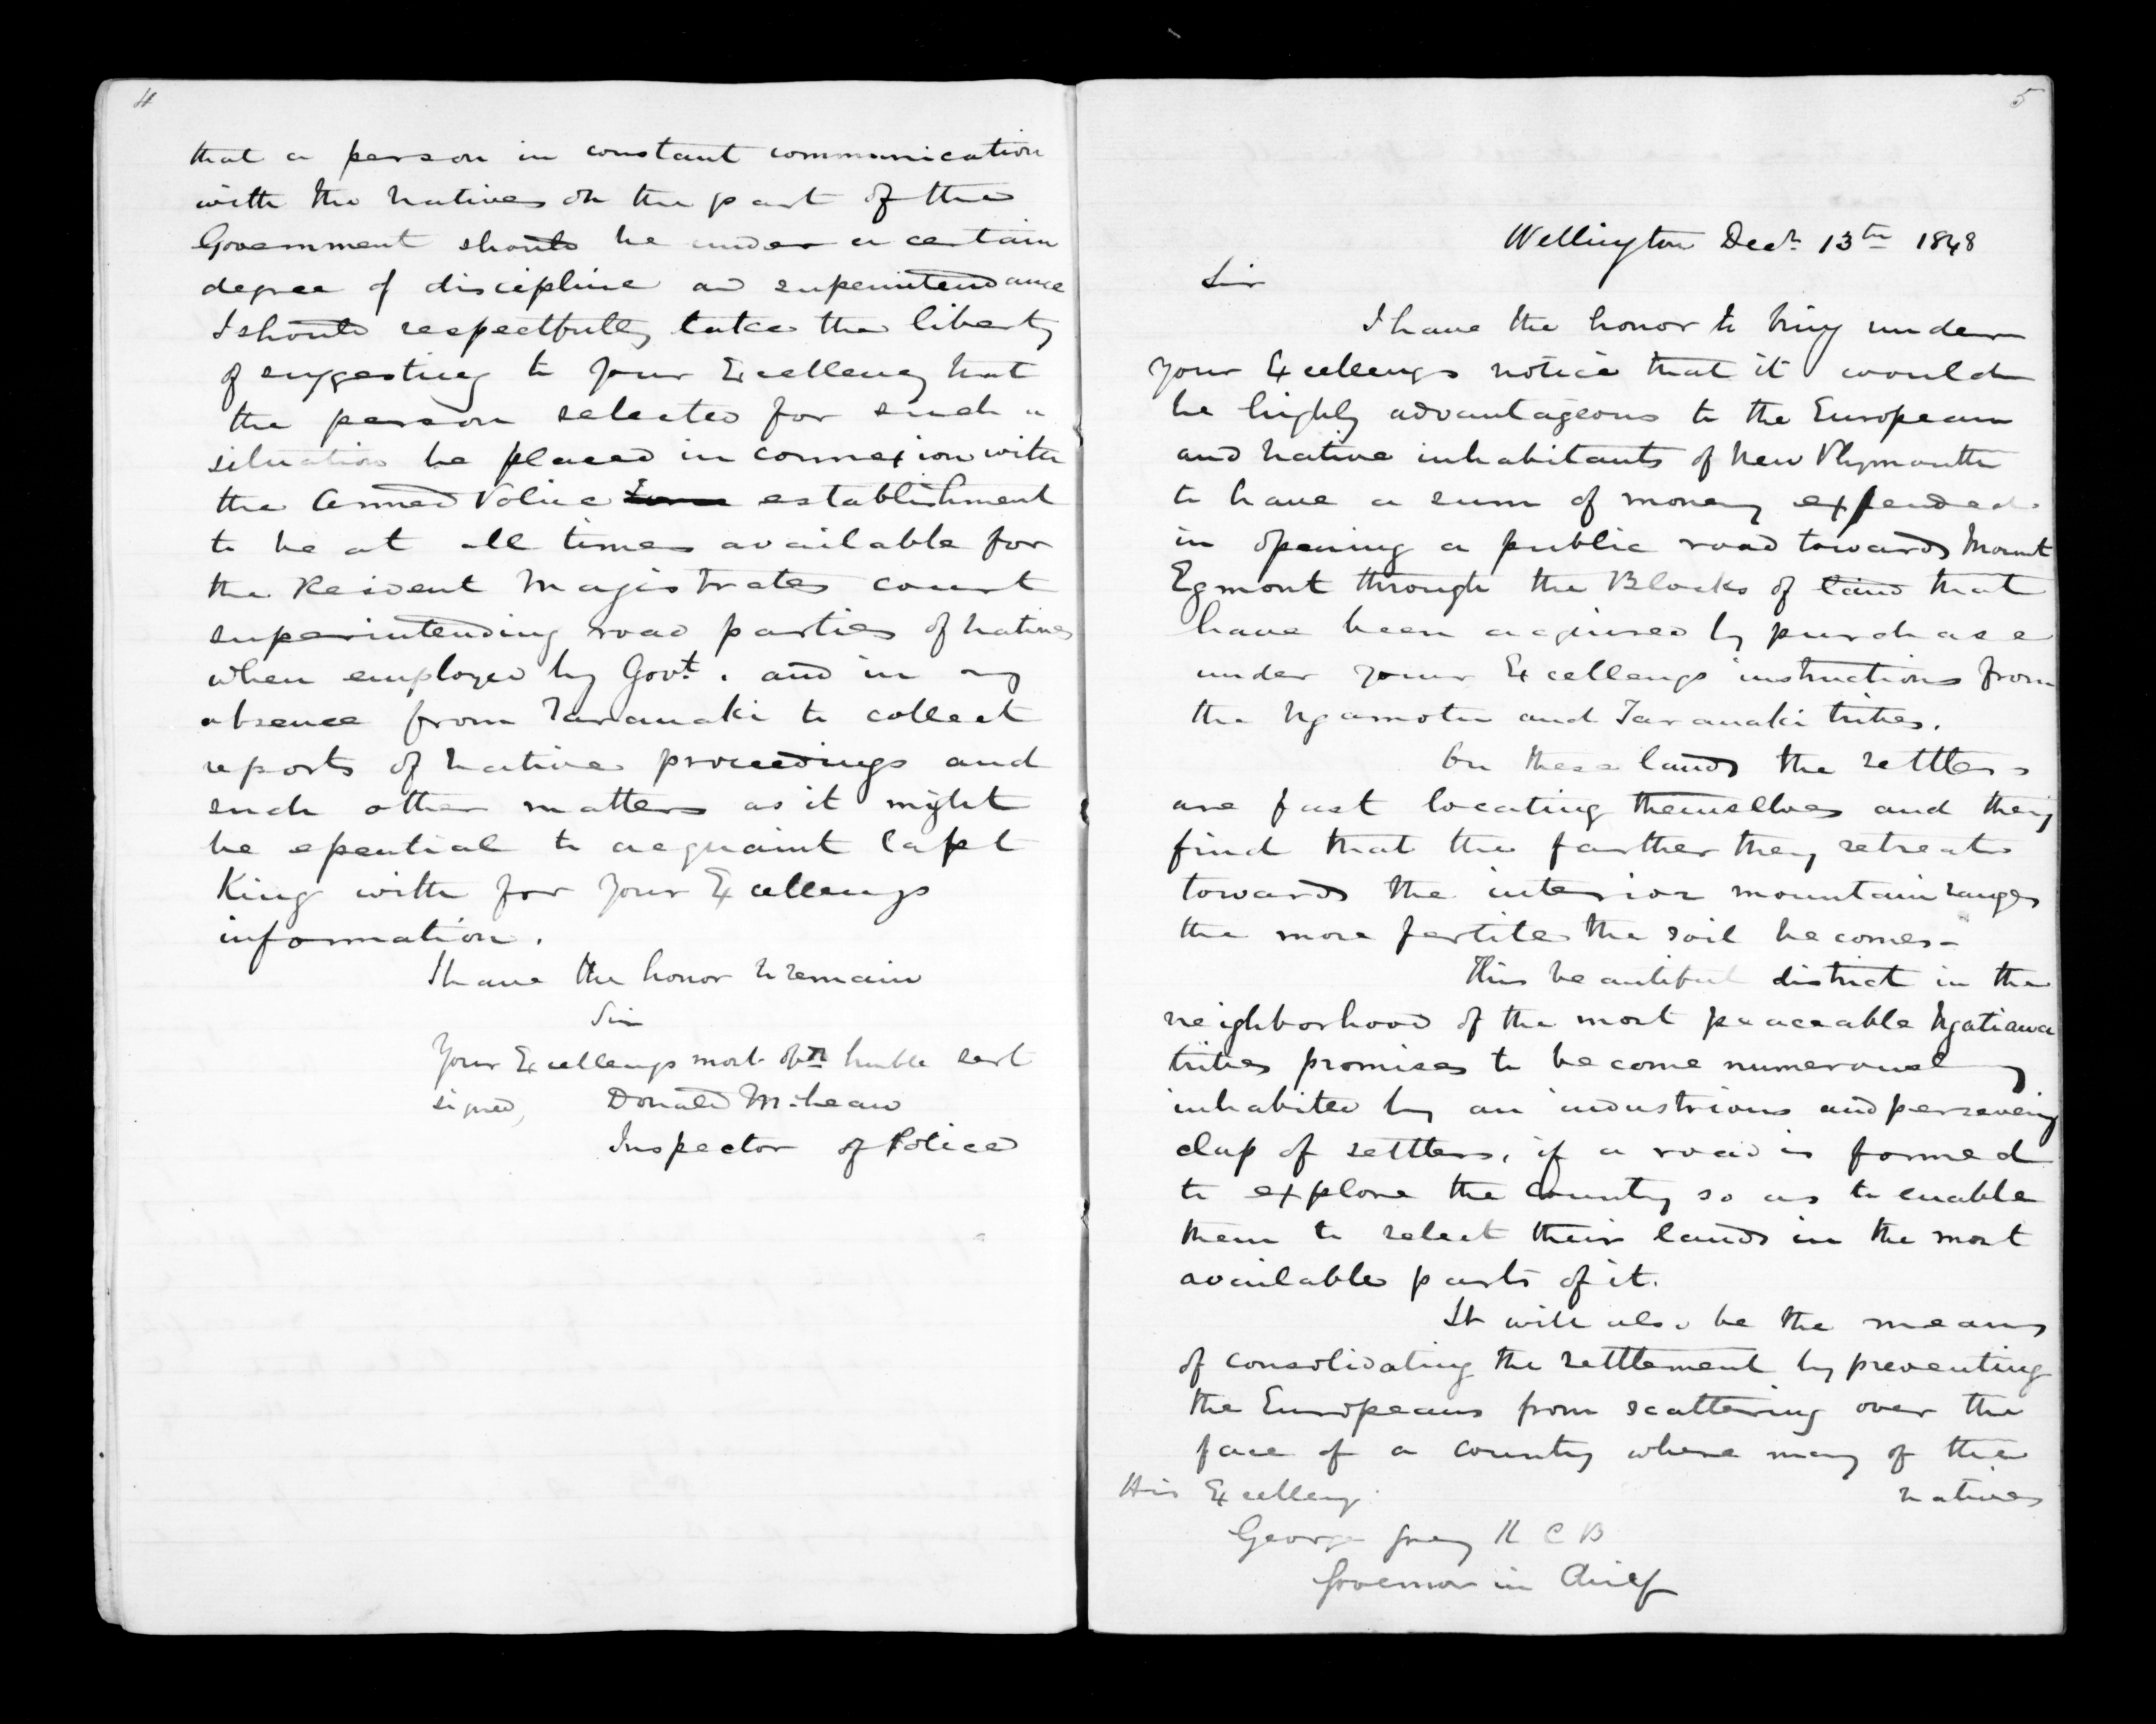 4
that a person in constant communication
with the natives on the part of the
Government should be under a certain
degree of discipline and superintendance
I should respectfully take the liberty
of suggesting to your Excellency that
the person selected for such a
situation be placed in connexion with
the Armed Police establishment
to be at all times available for
the Resident Magistrates court
superintending road parties of natives
when employed by Govt. and in my
absence from Taranaki to collect
reports of native proceedings and
such other matters as it might
be essential to acquaint Capt
King with for your Excellencys
information.
I have the honor to remain
Sir
Your Excellencys most obt humble servt
signed, Donald McLean
Inspector of Police
5
Wellington Decr 13th 1848
Sir
I have the honor to bring under
your Excellencys notice that it would
be highly advantageous to the European
and native inhabitants of New Plymouth
to have a sum of money expended
in opening a public road towards Mount
Egmont through the Blocks of land that
have been acquired by purchase
under your Excellencys instructions from
the Ngamotu and Taranaki tribes.
On these lands the settlers
are fast locating themselves and they
find that the farther they retreat
towards the interior mountain ranges
the more fertile the soil becomes -
This beautiful district in the
neighborhood of the most peaceable Ngatiawa
tribes promises to become numerously
inhabited by an industrious and persevering
class of settlers, if a road is formed
to explore the country so as to enable
them to select their lands in the most
available parts of it.
It will also be the means
of consolidating the settlement by preventing
the Europeans from scattering over the
face of a country where many of the
His Excellency natives
George Grey K C B
Governor in Chief